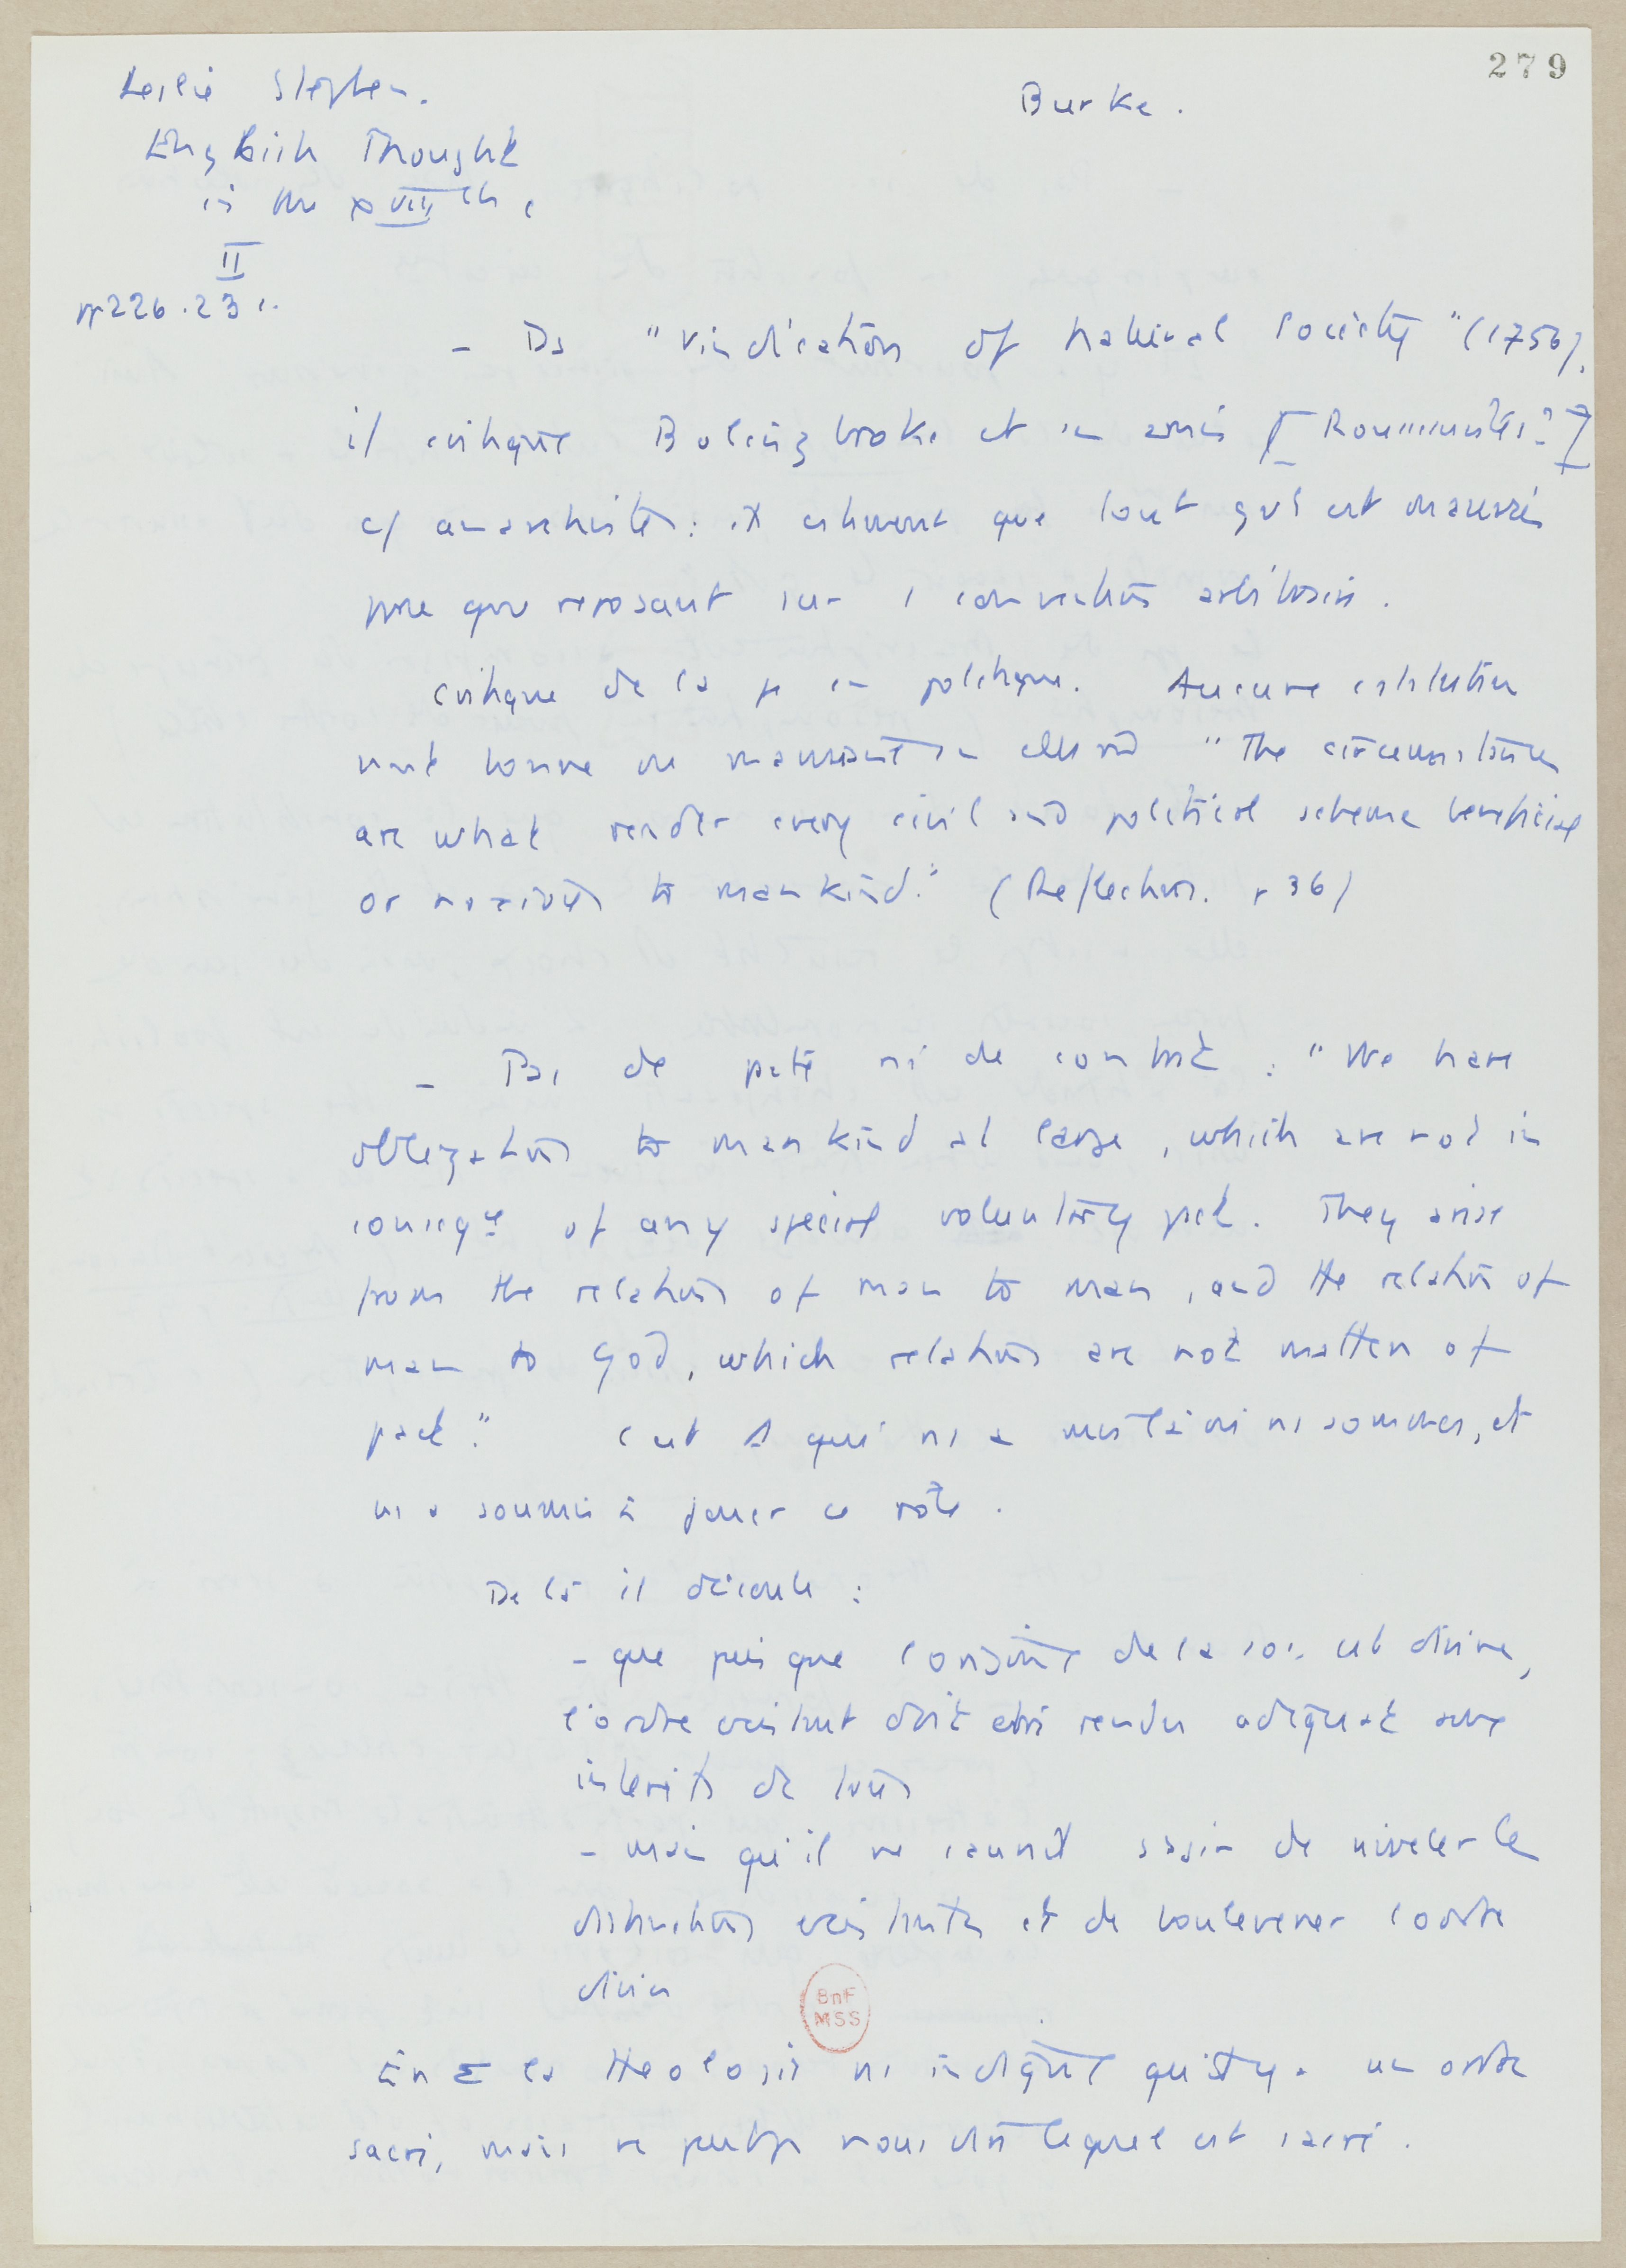 279
Leslie Stephen.
English Thought
in the XVIIIth c
II
pp 226. 23
Burke.
- Ds "Vindication of natural society" (1756),
il critique Bolingbroke et ses amis [Rousseauistes?]
c/ anarchistes: ils estiment que tout gvt est mauvais
pce que reposant sur 1 convention arbitraire.
Critique de la φ en politique. Aucune institution
n'est bonne ou mauvaise en elle même "The circumstances
are what render every civil and political scheme beneficial
or noxious to mankind." (Reflections. p 36)
- Pas de pacte ni de contrat : "We have
obligations to mankind at large, which are not in
conseqce of any special voluntary pact. They arise
from the relations of man to man, and the relation of
man to God, which relations are not matters of
pact." C'est D qui ns a mis là où ns sommes, et
ns a soumis à jouer ce rôle.
De là il découle :
- que puisque l'origine de la soc. est divine,
l'ordre existant doit être rendu adéquat aux
intérêts de tous
- mais qu'il ne saurait s'agir de niveler les
distinctions existantes et de bouleverser l'ordre
divin
En Σ la théologie ns indique qu'il y a un ordre
sacré, mais ne peut pas nous dire lequel est sacré.
BnF
MSS